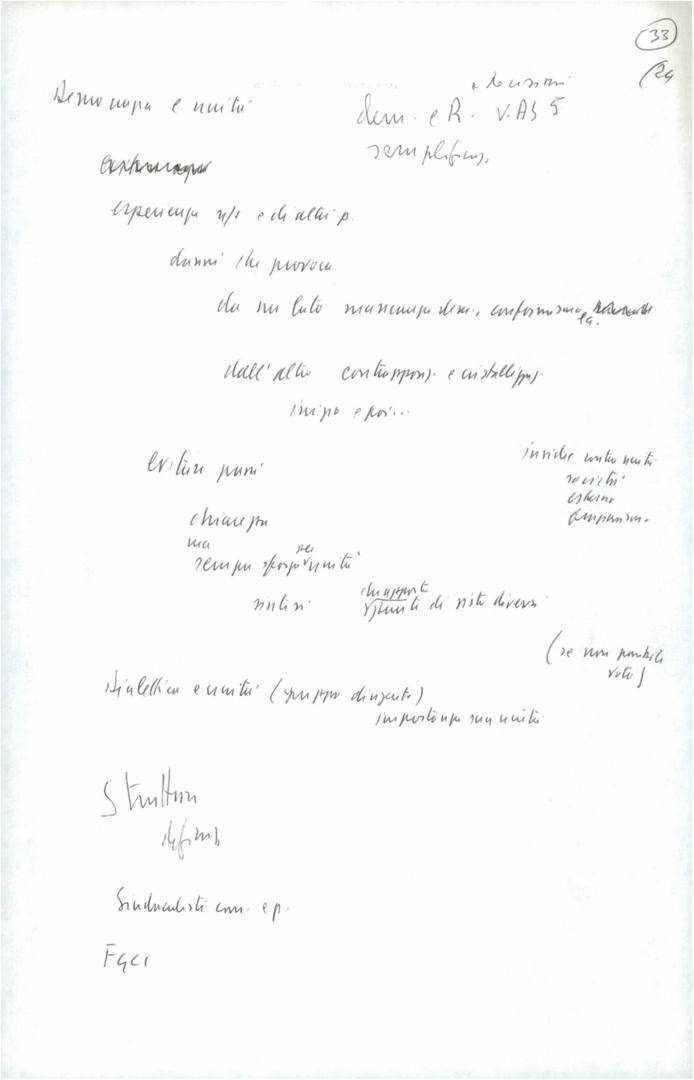 33
24
Democrazia e unità
e decisioni
dem. e R. V. AS 5
semplificaz.
esperienza n/s e di altri p.
danni che provoca
da un lato mancanza dem., conformismo
dall'altro contrappos. e cristallizzaz.
inizio e poi...
Evitare
insidie unità
società
esterne
chiarezza
ma
sempre sforzo per unità
sintesi
punti di vista diversi
(se non possibile
voto)
Dialettica e unità (gruppo dirigente)
importanza sua unità
Struttura
Sindacalisti com. e p.
FGCI